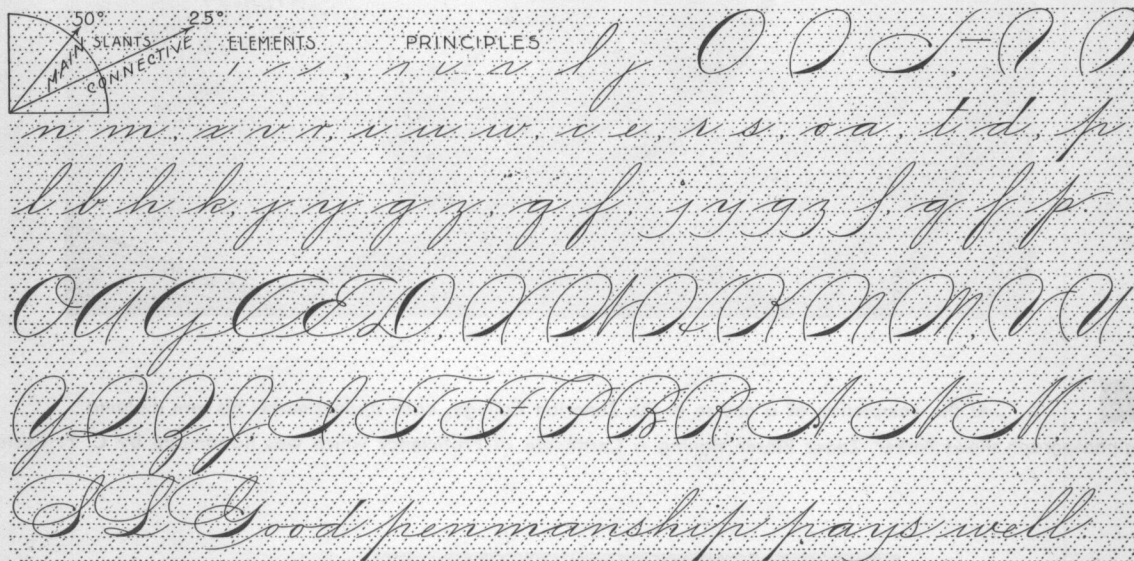 50° 25°
MAIN SLANTS CONNECTIVE ELEMENTS PRINCIPLES
n m, x v r, i u w, c e, r s, o a, t d, p
l b h k, j y g z, q f, j y g z f, q f p.
O A G C E D, X W Q K N M, V U
Y, Q Z J, S T F P B R, A N M,
S L Good penmanship pays well.